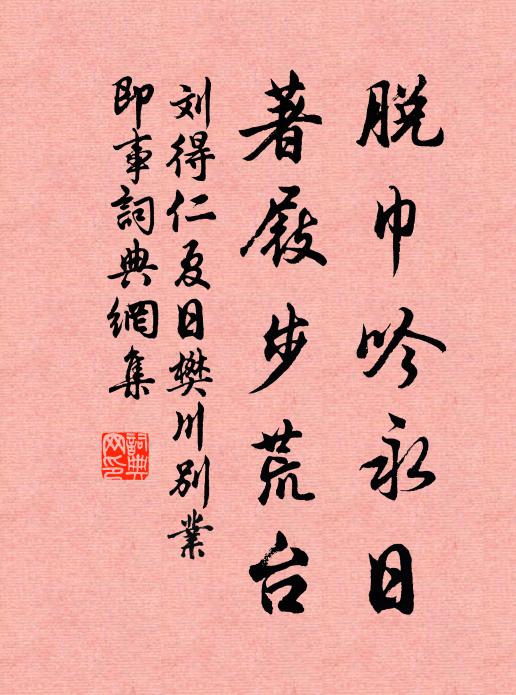 脱巾吟永日
著屐步荒台
刘得仁夏日樊川别業
即事詞典網集
詞典网印